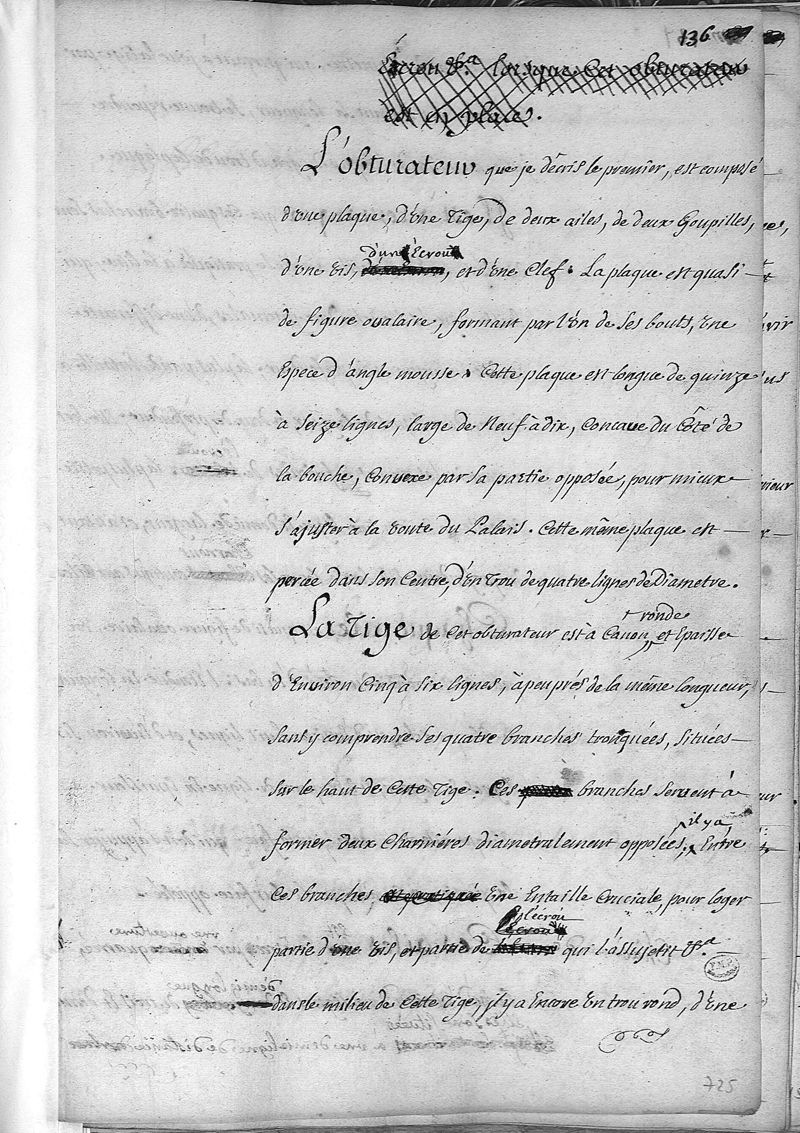 136
Ecrou &c.a lorsque cet obturateur
est en place.
L'obturateur que je décris le premier, est composé
d'une plaque, d'une Tige, de deux ailes, de deux Goupilles,
d'un Ecrou
d'une vis, et d'une Clef. La plaque est quasi
de figure ovalaire, formant par l'un de ses bouts, une
Espece d'angle mousse. Cette plaque est longue de quinze
à Seize lignes, large de Neuf à dix, Concave du Côté de
la bouche, Convexe par sa partie opposée, pour mieux
s'ajuster à la voute du Palais. Cette même plaque est
percée dans son Centre, d'un Trou de quatre lignes de Diametre.
ronde
La Tige de Cet obturateur est à Canon, et Epaisse
d'Environ Cinq à six lignes, à peu prés de la même longueur,
sans y comprendre ses quatre branches tronquées, situées
sur le haut de Cette Tige. Ces branches servent à
il y a
former deux Charniéres diametralement opposées, Entre
Ces branches une Entaille Cruciale pour loger
l'écrou
partie d'une vis, et partie de qui l'assujetit &.a
dans le milieu de Cette Tige, il y a Encore un trou rond, d'une
725